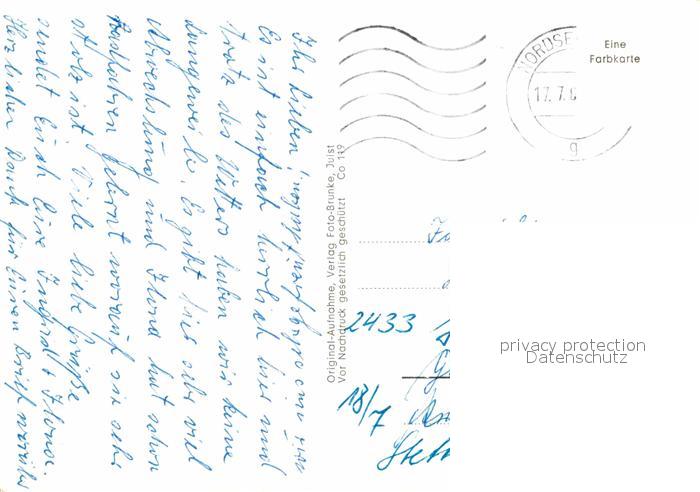 Ihr Lieben!
Es ist einfach herrlich hier und
trotz des Wetters haben wir keine
Langeweile. Es gibt hier sehr viel
Abwechslung und Ilona hat schon
Radfahren gelernt worauf sie sehr
stolz ist. Viele liebe Grüße
sendet Euch Eure Ingrid + Ilona.
Herzlichen Dank für Euren Brief
Original-Aufnahme, Verlag Foto-Brunke, Juist
Vor Nachdruck gesetzlich geschützt Co 119
NORDSE
17. 7. 6
g
Eine
Farbkarte
2433
18/7
privacy protection
Datenschutz